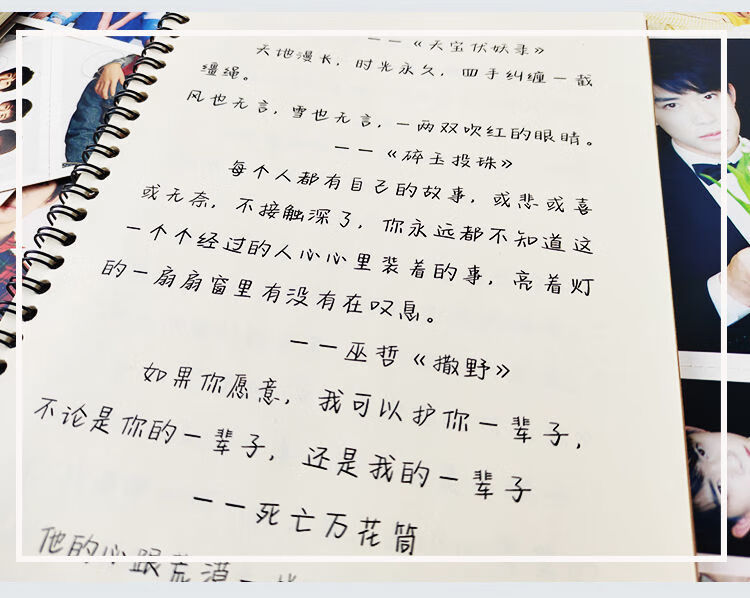 ——《天宝伏妖录》
天地漫长，时光永久，四手纠缠一截
缰绳。
风也无言，雪也无言，一两双吹红的眼睛。
——《碎玉投珠》
每个人都有自己的故事，或悲或喜
或无奈，不接触深了，你永远都不知道这
一个个经过的人心心里装着的事，亮着灯
的一扇扇窗里有没有在叹息。
——巫哲《撒野》
如果你愿意，我可以护你一辈子，
不论是你的一辈子，还是我的一辈子
——死亡万花筒
他的心跟荒漠一